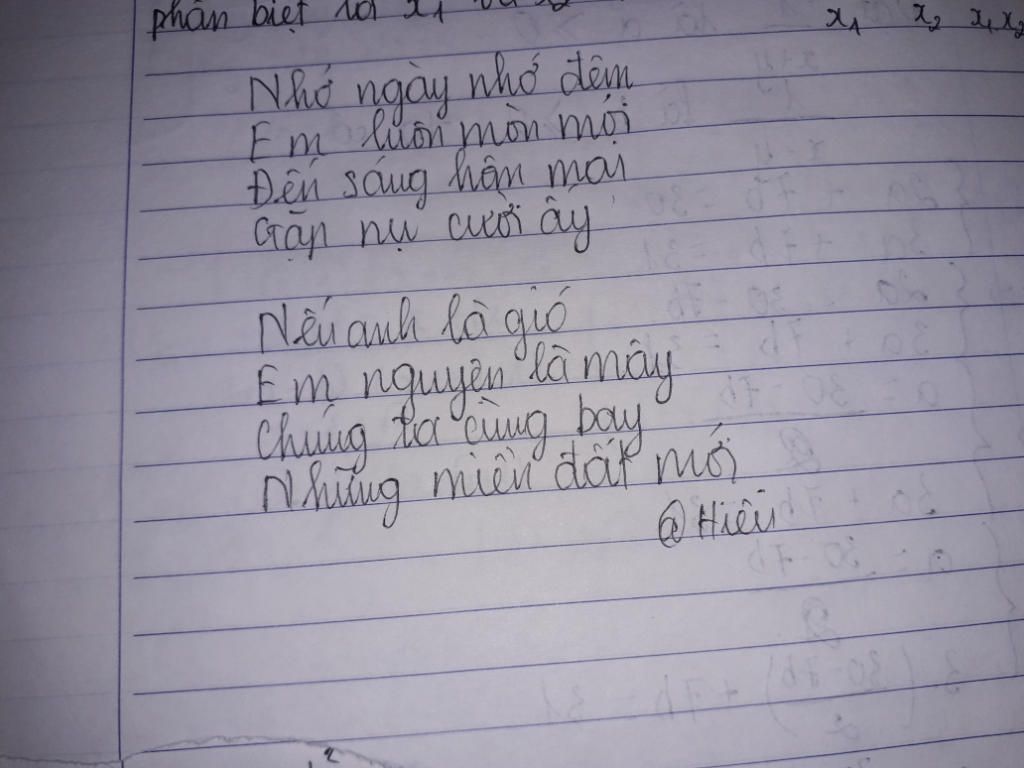 phân biệt là x₁ và x₂ x₁ x₂ x₁x₂
Nhớ ngày nhớ đêm
Em luôn mòn mỏi
Đến sáng hôm mai
Gặp nụ cười ấy
Nếu anh là gió
Em nguyện là mây
Chúng ta cùng bay
Những miền đất mới
@Hiếu